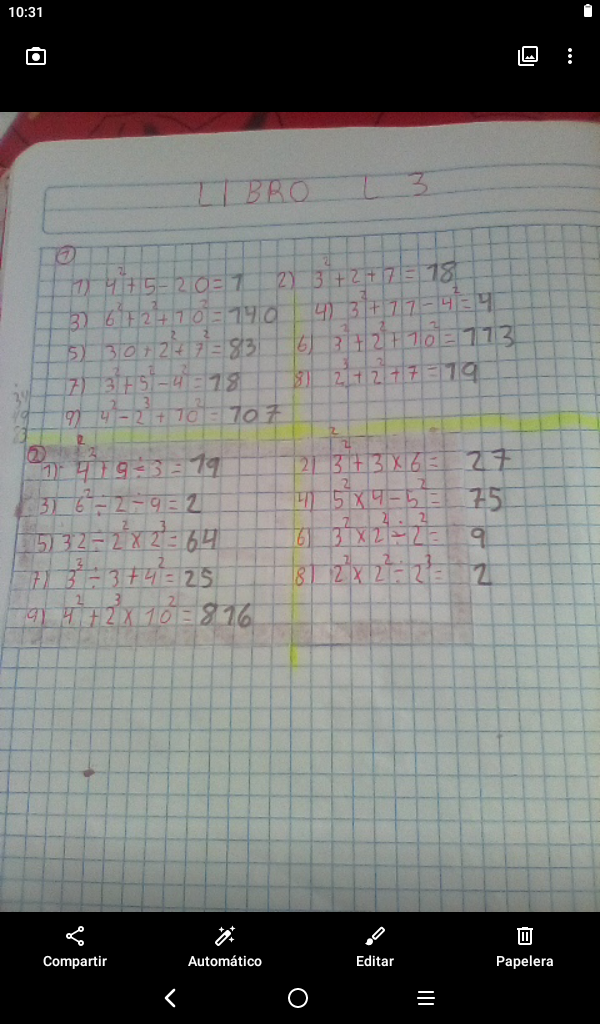 10:31
LIBRO L 3
1
1) 4²+5-20=1 2) 3²+2+7=18
3) 6²+2²+10²=140 4) 3²+11-4²=4
5) 30+2²+7²=83 6) 3²+2²+10²=113
7) 3²+5²-4²=18 8) 2³+2²+7=19
9) 4²-2³+10²=107
2
1) 4²+9÷3=19 2) 3²+3×6= 27
3) 6²÷2÷9=2 4) 5²×4-5²= 75
5) 32÷2²×2³=64 6) 3²×2²÷2²= 9
7) 3³÷3+4²=25 8) 2²×2²÷2³= 2
9) 4²+2³×10²=816
Compartir Automático Editar Papelera